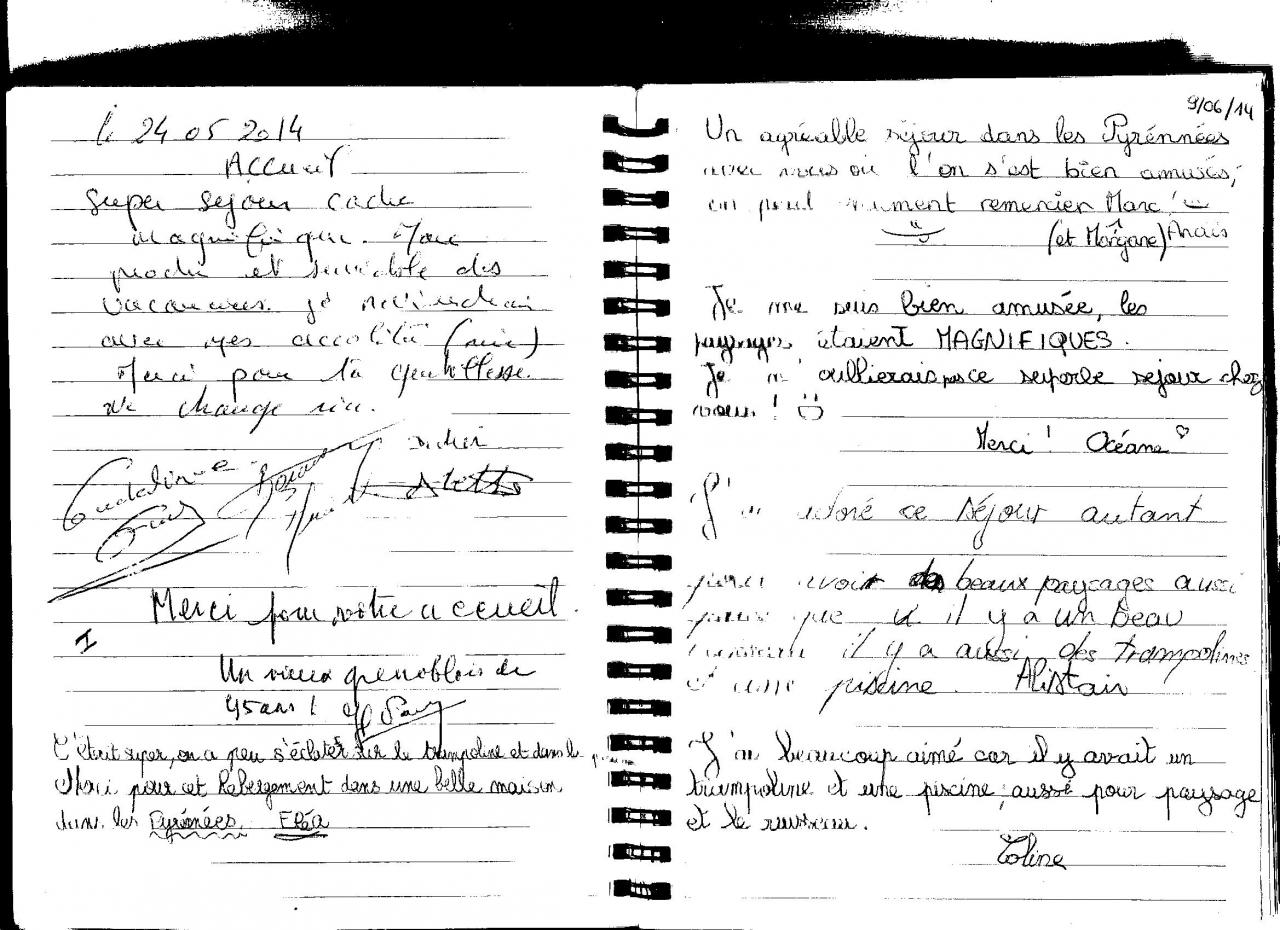 le 24 05 2014
ACCueil
Super séjour cadre
magnifique. Marc
proche et serviable des
vacanciers. je reviendrai
avec mes accolités (mimi)
Merci pour ta gentillesse.
Ne change rien.
Didier
Merci pour votre accueil.
Un vieux grenoblois de
45 ans !
C'était super, on a peu s'éclater sur le trampoline et dans la
Merci pour cet hébergement dans une belle maison
dans les Pyrénées. Fléa
9/06/14
Un agréable séjour dans les Pyrénnées
avec vous où l'on s'est bien amusés,
on peut vraiment remercier Marc !
(et Morgane) Anaïs
Je me suis bien amusée, les
paysages étaient MAGNIFIQUES.
Je n'oullierais pas ce superbe sejour chez
vous !
Merci ! Océane
J'ai adoré ce séjour autant
pour avoir de beaux paysages aussi
parce que il y a un beau
il y a aussi des trampolines
et une piscine. Alistair
J'ai beaucoup aimé car il y avait un
trampoline et une piscine, aussi pour paysage
et le ruisseau.
Coline